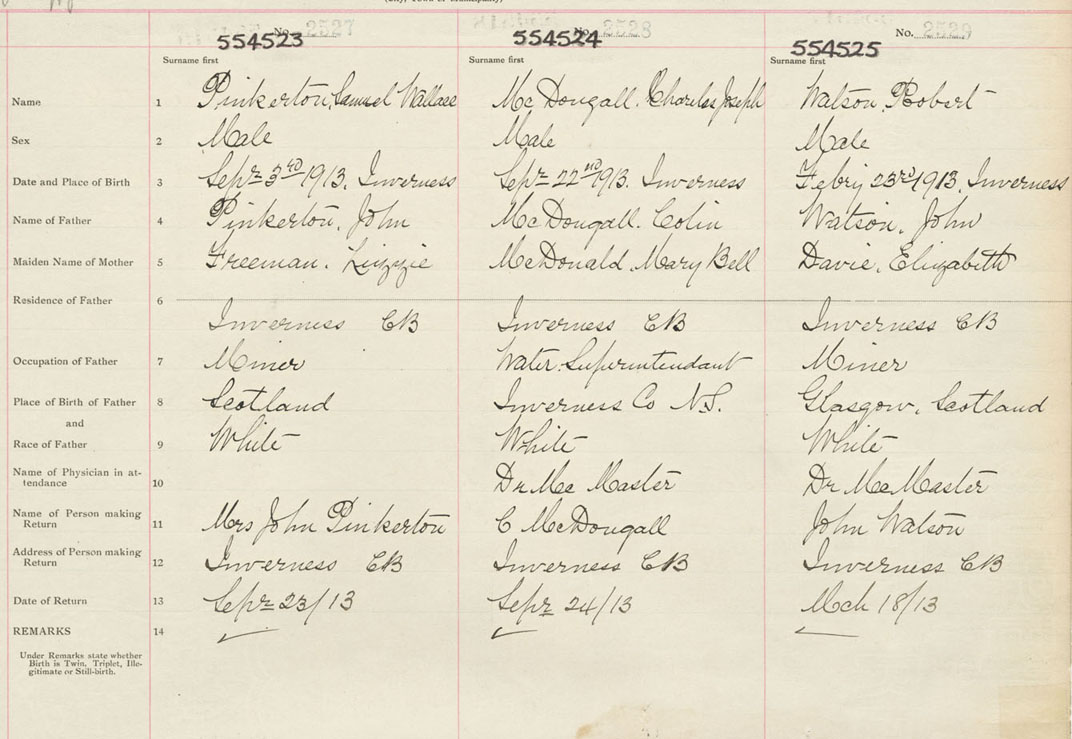 (City, Town or Municipality)
554523 No. 2527 554524 No. 2528 554525 No. 2529
Surname first Surname first Surname first
Name 1 Pinkerton, Samuel Wallace McDougall. Charles Joseph Watson, Robert
Sex 2 Male Male Male
Date and Place of Birth 3 Septr 3rd 1913. Inverness Septr 22nd 1913. Inverness Febry 23rd 1913, Inverness
Name of Father 4 Pinkerton, John McDougall. Colin Watson, John
Maiden Name of Mother 5 Freeman. Lizzie McDonald. Mary Bell Davie, Elizabeth
Residence of Father 6
Inverness CB Inverness CB Inverness CB
Occupation of Father 7 Miner Water Superintendant Miner
Place of Birth of Father 8 Scotland Inverness Co N.S. Glasgow, Scotland
and
Race of Father 9 White White White
Name of Physician in at-
tendance 10 Dr McMaster Dr McMaster
Name of Person making
Return 11 Mrs John Pinkerton C McDougall John Watson
Address of Person making
Return 12 Inverness CB Inverness CB Inverness CB
Date of Return 13 Septr 23/13 Septr 24/13 Mch 18/13
REMARKS 14
Under Remarks state whether
Birth is Twin. Triplet, Ille-
gitimate or Still-birth.